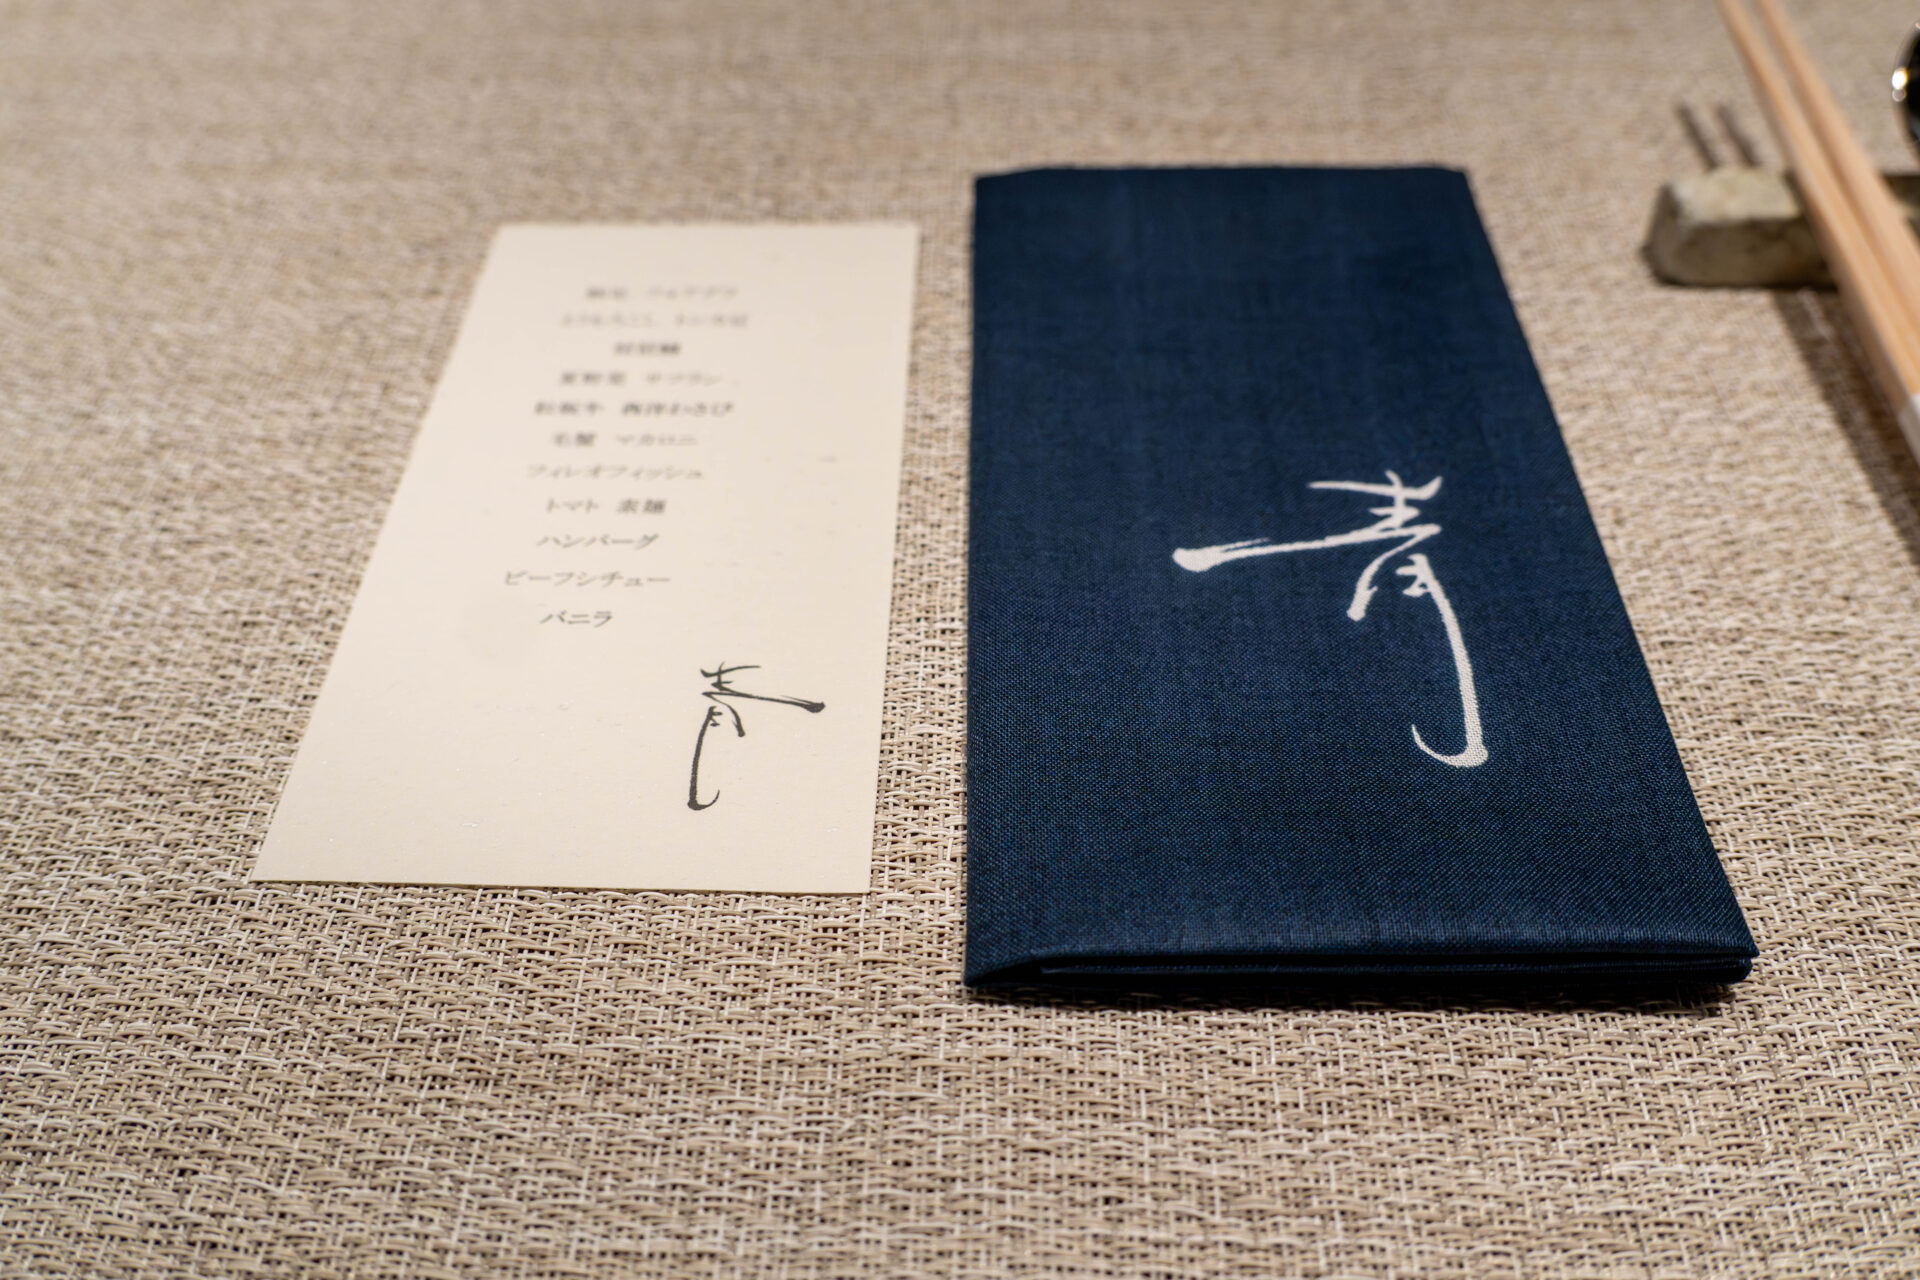 フォアグラ
とうもろこし
夏野菜 サフラン
松阪牛 西洋わさび
毛蟹 マカロニ
フィレオフィッシュ
トマト 素麺
ハンバーグ
ビーフシチュー
バニラ
青
青